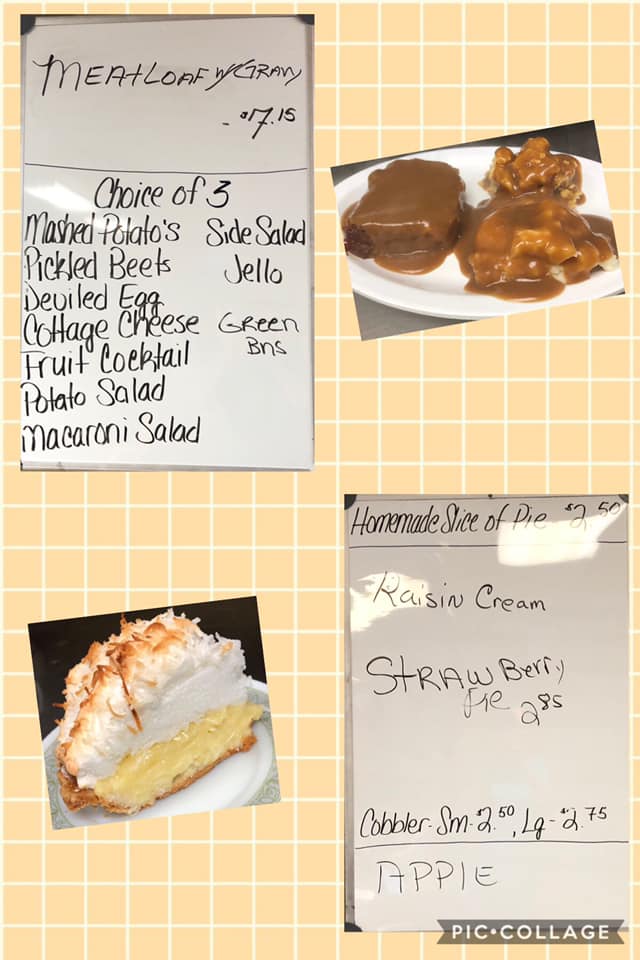 MEAtLOAF W/GRAVY
- $7.15
Choice of 3
Mashed Potato's Side Salad
Pickled Beets Jello
Deviled Egg
Cottage Cheese GREEN
Fruit Cocktail Bns
Potato Salad
Macaroni Salad
Homemade Slice of Pie $2.50
Raisin Cream
STRAWBerry
Pie 2.85
Cobbler- Sm-$2.50, Lg-$2.75
APPlE
PIC•COLLAGE